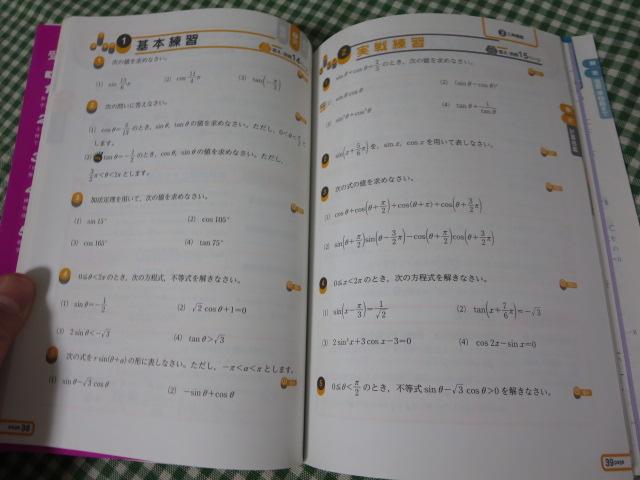 1 基本練習
1 次の値を求めなさい。
(1) sin 13/6 π (2) cos 11/4 π (3) tan(−π/3)
2 次の問いに答えなさい。
(1) cosθ=5/13 のとき、sinθ, tanθの値を求めなさい。ただし、0<θ<π/2と
します。
(2) tanθ=−1/2 のとき、cosθ, sinθの値を求めなさい。ただし、
3/2 π<θ<2πとします。
3 加法定理を用いて、次の値を求めなさい。
(1) sin 15° (2) cos 105°
(3) cos 165° (4) tan 75°
4 0≦θ<2πのとき、次の方程式、不等式を解きなさい。
(1) sinθ=−1/2 (2) √2 cosθ+1=0
(3) 2 sinθ<−√3 (4) tanθ>√3
5 次の式を r sin(θ+α) の形に表しなさい。ただし、−π<α<πとします。
(1) sinθ−√3 cosθ (2) −sinθ+cosθ
38
2 実戦練習
1 のとき、次の値を求めなさい。
(1) sinθcosθ (2) (sinθ−cosθ)²
(3) sin³θ+cos³θ (4) tanθ+1/tanθ
2 sin(x+5/6 π) を、sin x, cos x を用いて表しなさい。
3 次の式の値を求めなさい。
(1) cosθ+cos(θ+π/2)+cos(θ+π)+cos(θ+3/2 π)
(2) sin(θ+π/2)sin(θ−3/2 π)−cos(θ+π/2)cos(θ+3/2 π)
4 0≦x<2πのとき、次の方程式を解きなさい。
(1) sin(x−π/3)=1/√2 (2) tan(x+7/6 π)=−√3
(3) 2 sin²x+3 cos x−3=0 (4) cos 2x−sin x=0
5 0≦θ<π/2 のとき、不等式 sinθ−√3 cosθ>0 を解きなさい。
39